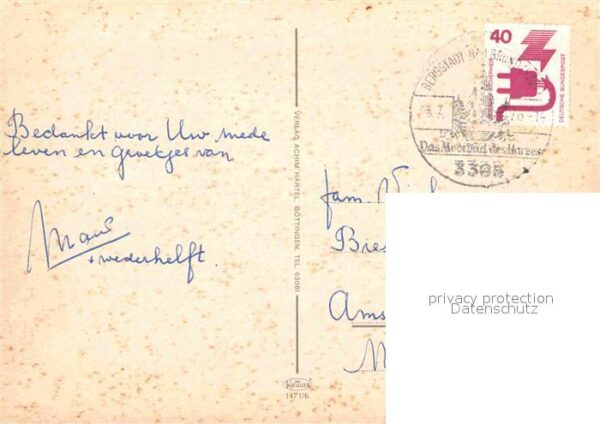 Bedankt voor Uw mede
leven en groetjes van
+ wederhelft.
VERLAG ACHIM HARTEL, GÖTTINGEN, TEL. 63081
Krüger
1471/6
40
DEUTSCHE BUNDESPOST
BERGSTADT BAD GRUND
Das Moorbad des Harzes
3395
fam.
Bies
Ams
privacy protection
Datenschutz